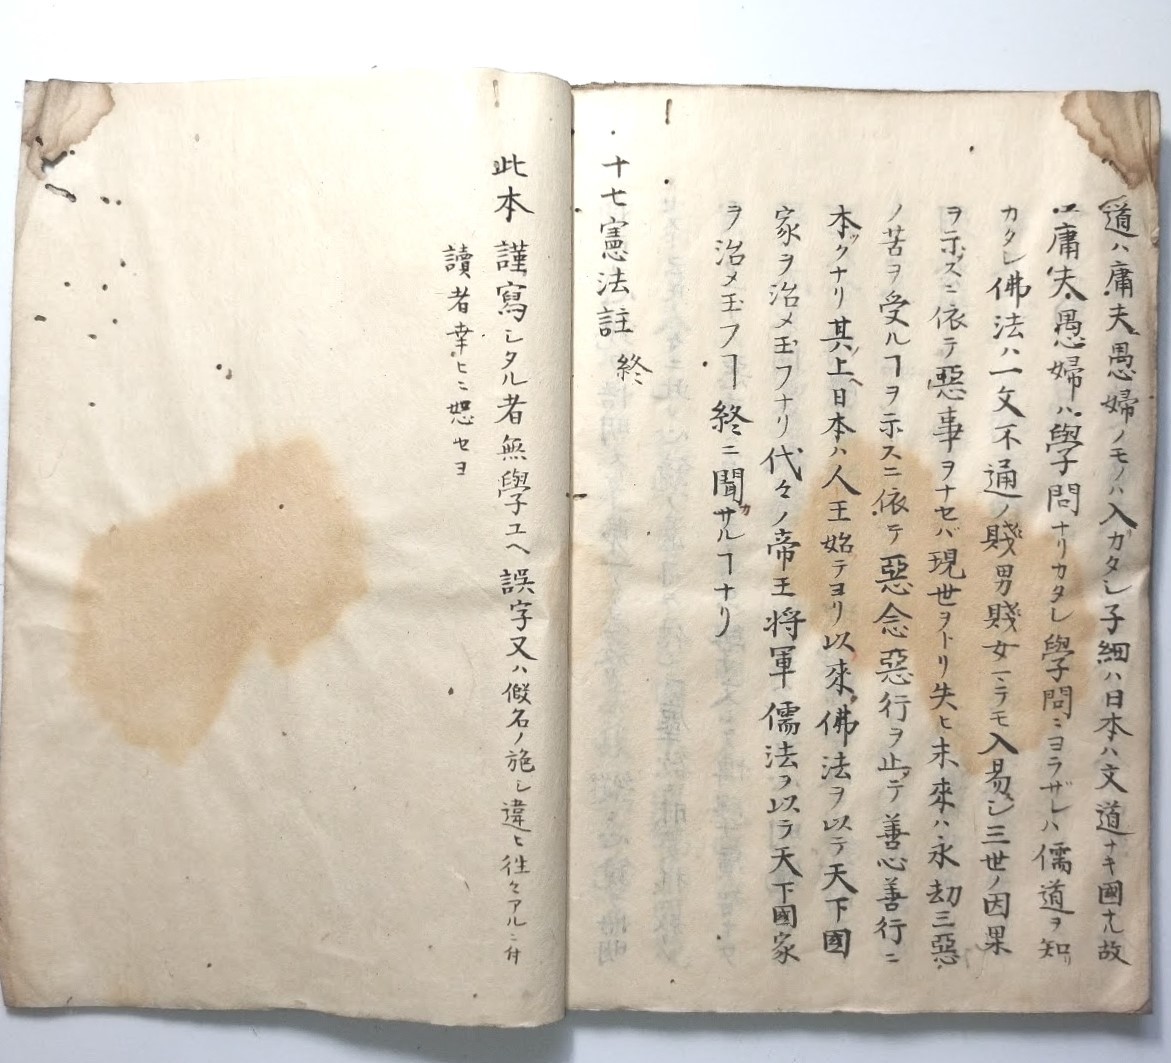 道ハ庸夫愚婦ノモノハ入ガタレ子細ハ日本ハ文道ナキ國尤故
庸夫愚婦ハ學問ナリカタレ學問ニヨラザレハ儒道ヲ知リ
カタレ佛法ハ一文不通ノ賤男賤女ニテモ入易シ三世ノ因果
ヲ示スニ依テ惡事ヲナセバ現世ヲトリ失ヒ未來ハ永劫三惡
ノ苦ヲ受ルヿヲ示スニ依テ惡念惡行ヲ止テ善心善行ニ
本ヅクナリ其上日本ハ人王始テヨリ以來佛法ヲ以テ天下國
家ヲ治メ玉フナリ代々ノ帝王将軍儒法ヲ以ラ天下國家
ヲ治メ玉フヿ終ニ聞カサルヿナリ
十七憲法註 終
此本謹寫シタル者無學ユヘ誤字又ハ假名ノ施シ違ヒ往々アルニ付
讀者幸ヒニ恕セヨ